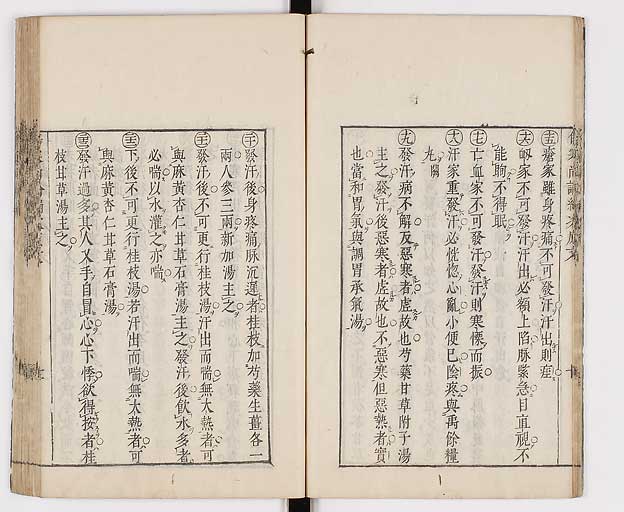 瘡家雖身疼痛不可發汗汗出則痙
衂家不可發汗汗出必額上陷脉緊急目直視不
能眴不得眠
亡血家不可發汗發汗則寒慄而振
汗家重發汗必恍惚心亂小便已陰疼與禹餘糧
丸
發汗病不解反惡寒者虛故也芍藥甘草附子湯
主之發汗後惡寒者虛故也不惡寒但惡熱者實
也當和胃氣與調胃承氣湯
發汗後身疼痛脉沉遲者桂枝加芍藥生薑各一
兩人參三兩新加湯主之
發汗後不可更行桂枝湯汗出而喘無大熱者可
與麻黃杏仁甘草石膏湯主之發汗後飲水多者
必喘以水灌之亦喘
下後不可更行桂枝湯若汗出而喘無大熱者可
與麻黃杏仁甘草石膏湯
發汗過多其人叉手自冒心心下悸欲得按者桂
枝甘草湯主之